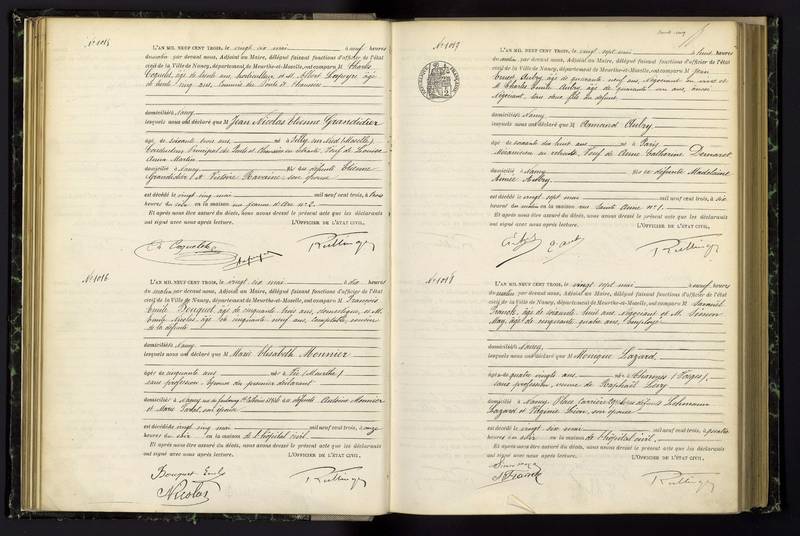 N° 1015
L'AN MIL NEUF CENT TROIS, le vingt six mai à neuf heures
du matin par devant nous, Adjoint au Maire, délégué faisant fonctions d'officier de l'état
civil de la Ville de Nancy, département de Meurthe-et-Moselle, ont comparu M Charles
Coquelet, âgé de trente ans, horticulteur et M. Albert Lapeyre âgé
de trente cinq ans, Commis des Ponts et Chaussées
domiciliés à Nancy
lesquels nous ont déclaré que M Jean Nicolas Etienne Grandidier
âgé de soixante trois ans né à Silly sur Nied (Moselle)
Conducteur Principal des Ponts et Chaussées en retraite, Veuf de Louise
Anna Martin
domicilié à Nancy fils des défunts Etienne
Grandidier et Victoire Ravaine son épouse
est décédé le vingt cinq mai mil neuf cent trois, à trois
heures du soir en la maison rue Jeanne d'Arc n° 2.
Et après nous être assuré du décès, nous avons dressé le présent acte que les déclarants
ont signé avec nous après lecture. L'OFFICIER DE L'ÉTAT CIVIL,
Ch Coquelet
N° 1016
L'AN MIL NEUF CENT TROIS, le vingt six mai à dix heures
du matin par devant nous, Adjoint au Maire, délégué faisant fonctions d'officier de l'état
civil de la Ville de Nancy, département de Meurthe-et-Moselle, ont comparu M François
Emile Bouquet, âgé de cinquante trois ans, domestique, et M.
Emile Nicolas, âgé de cinquante neuf ans, comptable, cousin
de la défunte
domiciliés à Nancy
lesquels nous ont déclaré que M Marie Elisabeth Monnier
âgée de cinquante ans née à Vic (Meurthe)
sans profession, épouse du premier déclarant
domiciliée à Nancy rue du faubourg des défunts Antoine Monnier
et Marie son épouse
est décédée le vingt cinq mai mil neuf cent trois, à onze
heures du soir en la maison de l'hôpital civil.
Et après nous être assuré du décès, nous avons dressé le présent acte que les déclarants
ont signé avec nous après lecture. L'OFFICIER DE L'ÉTAT CIVIL,
Bouquet Emile
Nicolas
N° 1017
L'AN MIL NEUF CENT TROIS, le vingt sept mai à huit heures
du matin, par devant nous, Adjoint au Maire, délégué faisant fonctions d'officier de l'état
civil de la Ville de Nancy, département de Meurthe-et-Moselle, ont comparu M Jean
Ernest Aubry, âgé de quarante neuf ans, Négociant en vins et
M Charles Emile Aubry, âgé de quarante un ans, aussi
Négociant, tous deux fils du défunt
domiciliés à Nancy
lesquels nous ont déclaré que M Armand Aubry
âgé de soixante dix huit ans né à Paris
Mécanicien en retraite, Veuf de Anne Catherine Demaret
domicilié à Nancy fils de défunte Madeleine
Aimée Aubry
est décédé le vingt sept mai mil neuf cent trois, à six
heures du matin en la maison rue Sainte Anne n° 1.
Et après nous être assuré du décès, nous avons dressé le présent acte que les déclarants
ont signé avec nous après lecture. L'OFFICIER DE L'ÉTAT CIVIL,
N° 1018
L'AN MIL NEUF CENT TROIS, le vingt sept mai à neuf heures
du matin, par devant nous, Adjoint au Maire, délégué faisant fonctions d'officier de l'état
civil de la Ville de Nancy, département de Meurthe-et-Moselle, ont comparu M Samuel
Franck, âgé de soixante huit ans Négociant et M. Simon
May, âgé de cinquante quatre ans, Employé
domiciliés à Nancy,
lesquels nous ont déclaré que M Monique Lazard,
âgée de quatre vingts ans née à Charmes (Vosges),
sans profession, veuve de Raphaël Levy
domiciliée à Nancy, Place Carrière des défunts Lehmann
Lazard et son épouse
est décédée le vingt six mai mil neuf cent trois, à quatre
heures du soir en la maison de l'hôpital civil.
Et après nous être assuré du décès, nous avons dressé le présent acte que les déclarants
ont signé avec nous après lecture. L'OFFICIER DE L'ÉTAT CIVIL,
S Franck